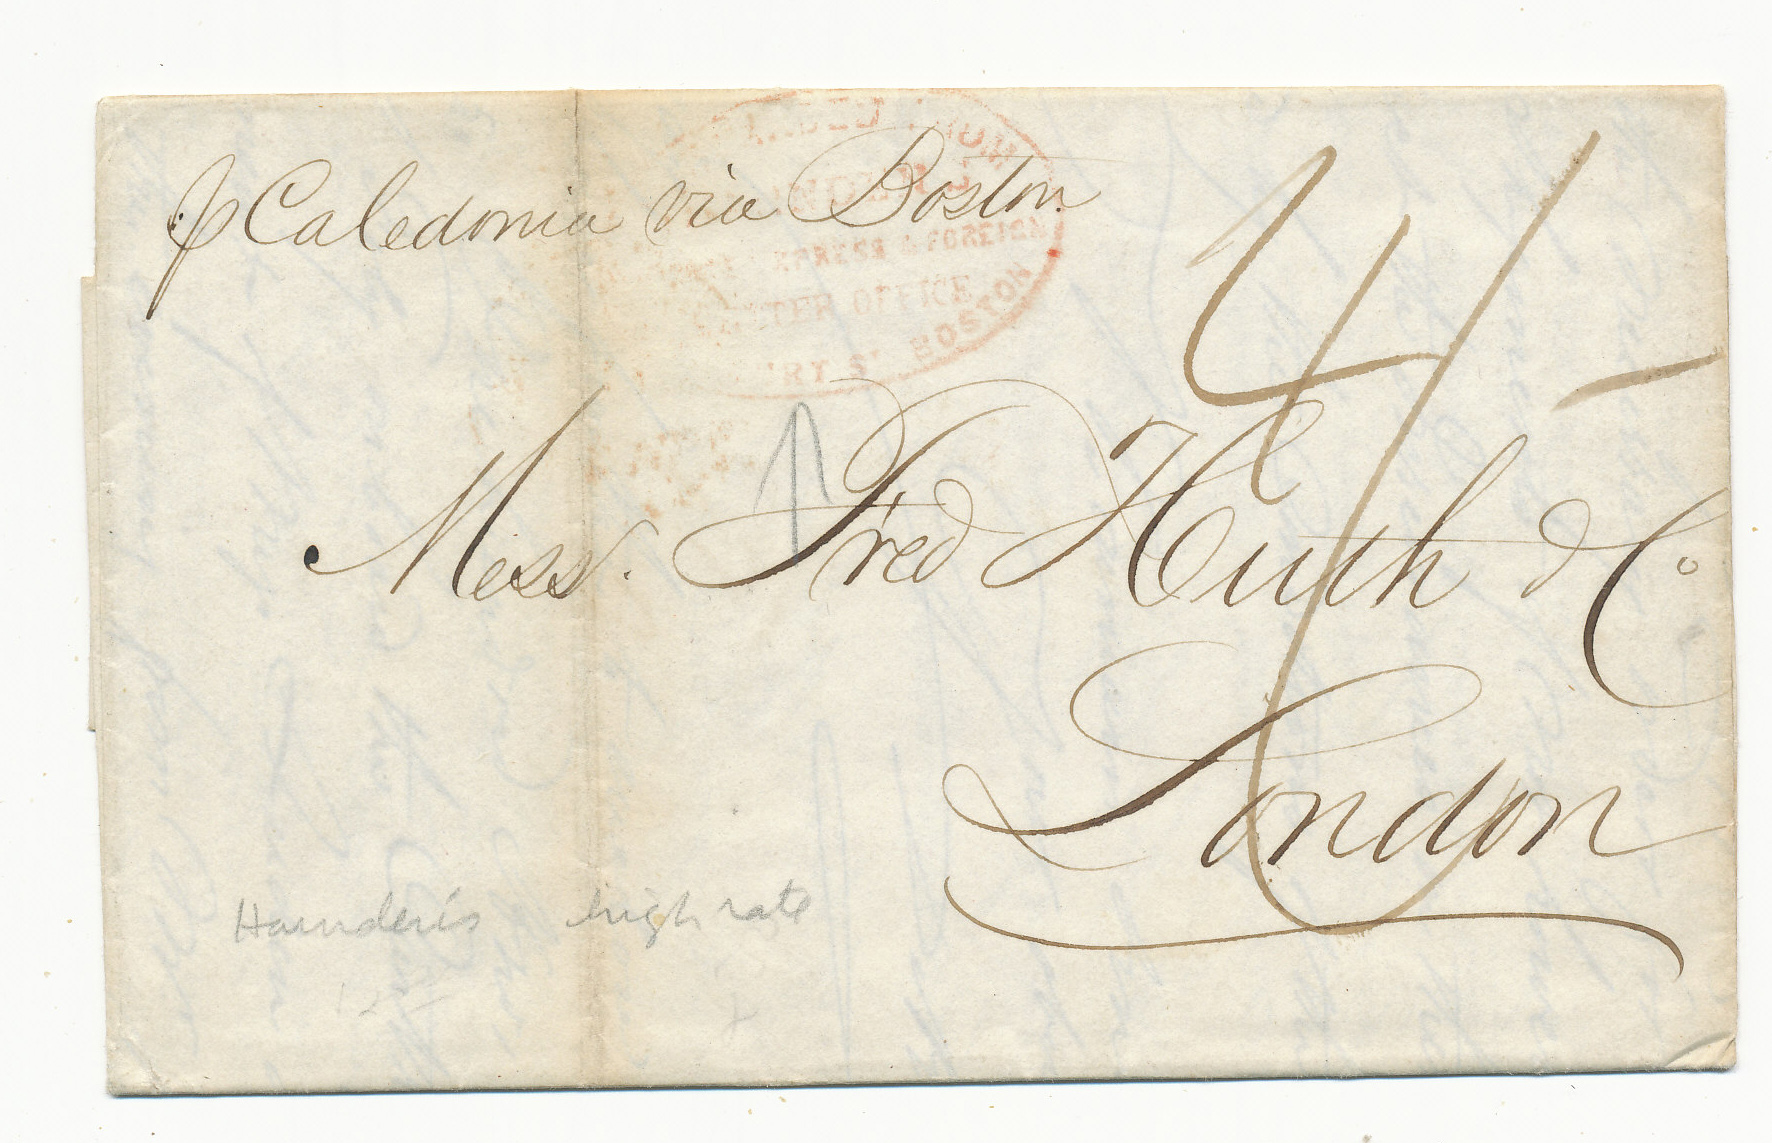 p Caledonia via Boston
EXPRESS & FOREIGN
LETTER OFFICE
BOSTON
Messrs. Fred Huth & Co
London
4/-
Harnden's high rate